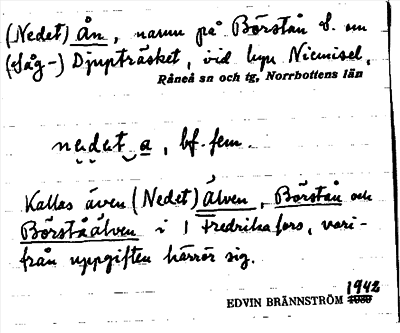 (Nedet) Ån, namn på Börstån
(Såg-) Djupträsket, vid byn Niemisel,
Råneå sn och tg, Norrbottens län
nedet a, bf. fem.
Kallas även (Nedet) Älven, Börstån och
Börståälven i Fredrikafors, vari-
från uppgiften härrör sig.
1942
EDVIN BRÄNNSTRÖM 1930